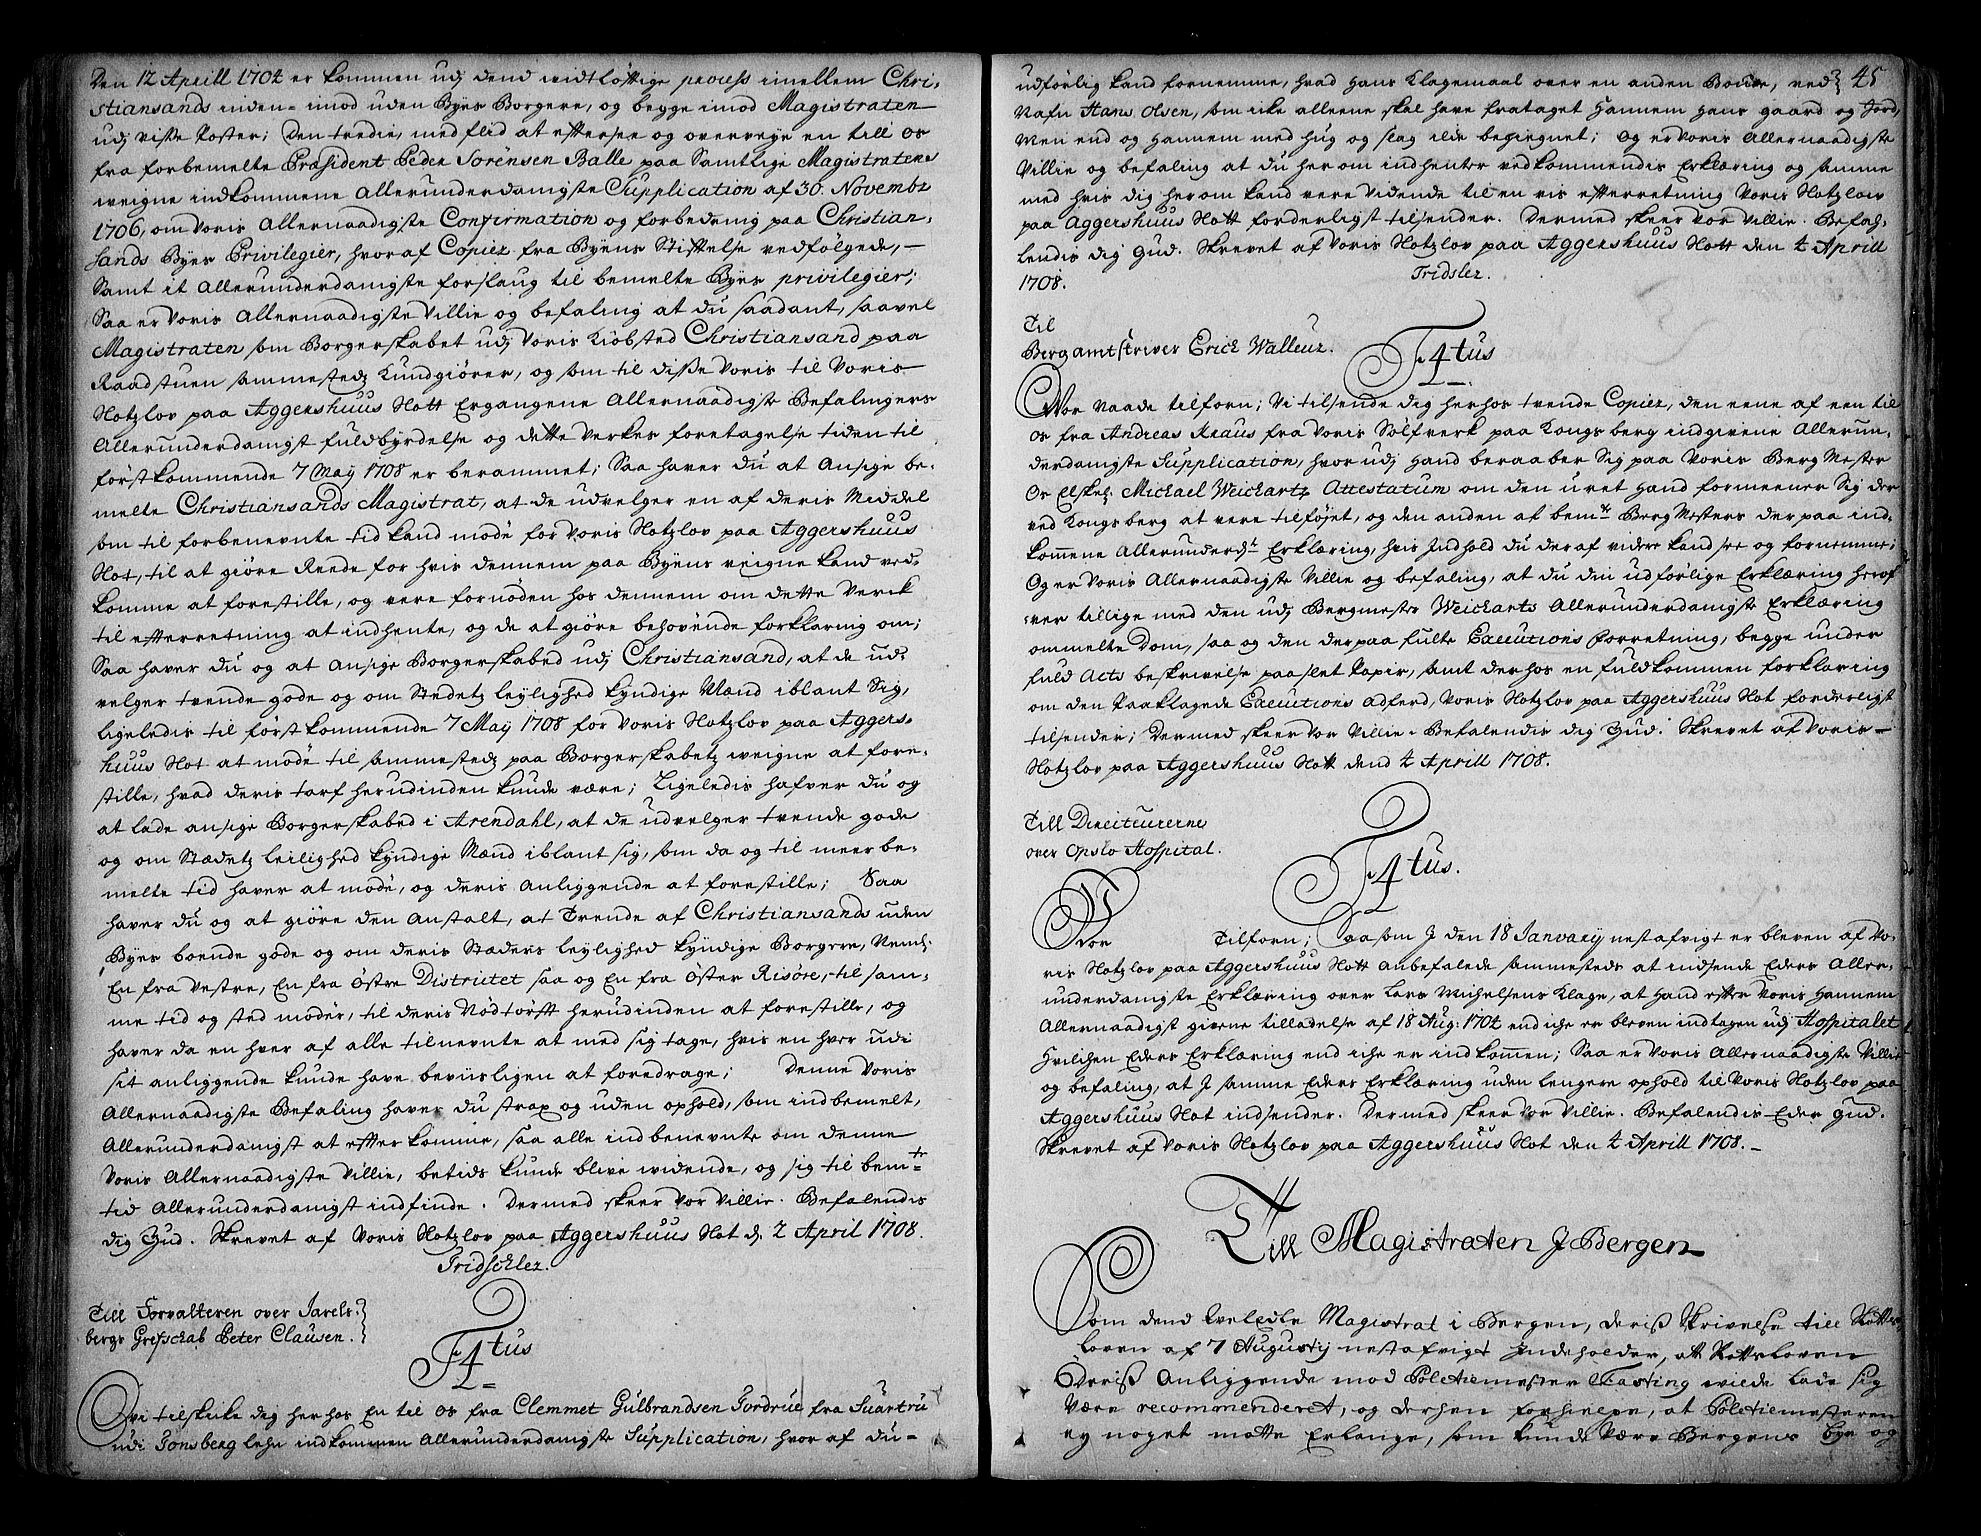 Den 12 Aprill 1704 er kommen udj dend widtløftige process imellem Chri-
stiansands inden- imod uden Byes Borgere, og begge imod Magistraten
udj visse Poster; Den tredie, med flid at effterse og overveye en till os
fra forbemelte Præsident Peder Sørensen Balle paa Samtlige Magistratens
weigne indkommene Allerunderdanigste Supplication af 30. Novembr
1706, om Voris Allernaadigste Confirmation og forbedring paa Christian-
sands Byes Privilegier, hvor af Copier fra Byens Stifftelse vedfølgede,
Samt it Allerunderdanigste forslaug til bemelte Byes privilegier;
Saa er Voris Allernaadigste Villie og befaling at du saadant, saavel
Magistraten som Borgerskabet udj Voris Kiøbsted Christiansand paa
Raadstuen sammestedz Kundgiører, og som til disse Voris til Voris
Slotzlov paa Aggershuus Slott Ergangene Allernaadigste Befalingers
Allerunderdanigst fuldbyrdelse og dette Verkes foretagelse tiden til
førstkommende 7 Maij 1708 er berammet; Saa haver du at Ansige be-
melte Christiansands Magistrat, at de udvelger en af deris Middel
som til forbenevnte tid kand møde for Voris Slotzlov paa Aggershuus
Slot, til at giøre Reede for hvis dennem paa Byens veigne kand ved-
komme at forestille, og vere fornøden hos dennem om dette Verck
til effterretning at indhente, og de at giøre behøvende forklaring om;
Saa haver du og at Ansige Borgerskabed udj Christiansand, at de ud-
velger tvende gode og om Stedetz leylighed kyndige Mænd iblant Sig,
ligeledis til først kommende 7 Maij 1708 for Voris Slotzlov paa Aggers-
huus Slot at møde til sammestedz paa Borgerskabetz weigne at fore-
stille, hvad deris tarf herudinden kunde være; Ligeledis hafver du og
at lade ansige Borgerskabed i Arendahl, at de udvelger tvende gode
og om Stædetz leilighed kyndige Mænd iblant sig, som da og til meerbe-
melte tid haver at møde, og deris anliggende at forestille; Saa
haver du og at giøre den Anstalt, at Trende af Christiansands uden
Byes boende gode og om deris Stæders leylighed kyndige Borgere, Neml.
En fra Vestre, En fra Østre Districtet saa og En fra Øster Risøer, til sam-
me tid og sted møder, til deris Nødtørft herudinden at forestille, og
haver da en hver af alle tilnevnte at med sig tage, hvis en hver udi
sit anliggende kunde have beviisligen at foredrage; Denne Voris
Allernaadigste Befaling haver du strax og uden ophold, som indbemelt,
Allerunderdanigst at effterkomme, saa alle indbenevnte om denne
Voris Allernaadigste Villie, betids kunde blive widende, og sig til bemte
tid Allerunderdanigst indfinde. Dermed skeer Vor Villie. Befalendis
dig Gud. Skrevet af Voris Slotzlov paa Aggershuus Slot d. 2 April 1708.
Tridschler.
Till Forvalteren over Jarels-
bergs Grefschab Peter Clausen.
F4tus
Vi tilskicke dig herhos En til os fra Clemmet Gulbrandsen Fordrue fra Suartru
udi Tonsberg lehn indkommen Allerunderdanigste Supplication, hvor af du
45
udførlig kand fornemme, hvad hans Klagemaal over en anden Bonde, ved
Nafn Hans Olsen, som icke alleene skal have frataget Hannem hans gaard og Jord,
Men end og Hannem med hug og slag ilde begegnet; Og er Voris Allernaadigste
Villie og befaling at du her om indhenter vedkommendis Erklæring og samme
med hvis dig herom kand vere Vidende til en vis effterretning Voris Slotzlov
paa Aggershuus Slott forderligst tilsender. Dermed skeer Vor Villie. Befah-
lendis dig Gud. Skrevet af Voris Slotzlov paa Aggershuus Slott den 2 Aprill
1708. Tridsler.
Til
Bergamtskriver Erick Walleur.
F4tus
Vor Naade tilforn; Vi tilsende dig herhos tvende Copier, den eene af een til
Os fra Andreas Kraus fra Voris Sølfverk paa Kongsberg indgivene Allerun-
derdanigste Supplication, hvor udj hand beraaber Sig paa Voris Berg Mester
Os Elskel. Michael Weichartz Attestatum om den uret Hand formeener Sig der
ved Kongsberg at vere tilføjet, og den anden af bemte Berg Mesters der paa ind-
komene Allerunderdt Erklæring, hvis Indhold du deraf videre kand see og fornemme;
Og er Voris Allernaadigste Villie og befaling, at du din udførlige Erklæring herof-
ver tillige med den udj Bergmester Weicharts Allerunderdanigste Erklæring
ommelte Dom, saa og den derpaa fulte Executions Forretning, begge under
fuld Acts beskrivelse paa slet Papir, samt derhos en fuldkommen forklaring
om den Paaklagede Executions adferd, Voris Slotzlov paa Aggershuus Slot forderligst
tilsender; Dermed skeer Vor Villie. Befalendis dig Gud. Skrevet af Voris
Slotzlov paa Aggershuus Slott dend 2 Aprill 1708.
Till Directeurerne
over Opslo Hospital.
F4tus.
Vor Tilforn; Saasom J den 18 January nestafvigt er bleven af Vo-
ris Slotzlov paa Aggershuus Slott anbefalede sammesteds at indsende Eders Aller-
underdanigste Erklæring over Lars Michelsens Klage, at Hand effter Voris Hannem
Allernaadigst givene tilladelse af 18 Aug: 1704 end iche er bleven indtagen udj Hospitalet
Hvilchen Eders Erklæring end iche er indkomen; Saa er Voris Allernaadigste Villie
og befaling, at J samme Eders Erklæring uden lengere ophold til Voris Slotzlov paa
Aggershuus Slot indsender. Dermed skeer Vor Villie. Befalendis Eder Gud.
Skrevet af Voris Slotzlov paa Aggershuus Slot den 2 Aprill 1708.
Till Magistraten J Bergen
Som dend Velædle Magistrat i Bergen, deriss Skrivelse till Slotts
loven af 7 Augustij nestafvigt Indeholder, att Slottsloven
Deriss Anliggende mod Politiemester Fasting wilde lade sig
være recommenderet, og derhen forhielpe, at Politiemesteren
ey noget motte Erlange, som kunde være Bergens bye og